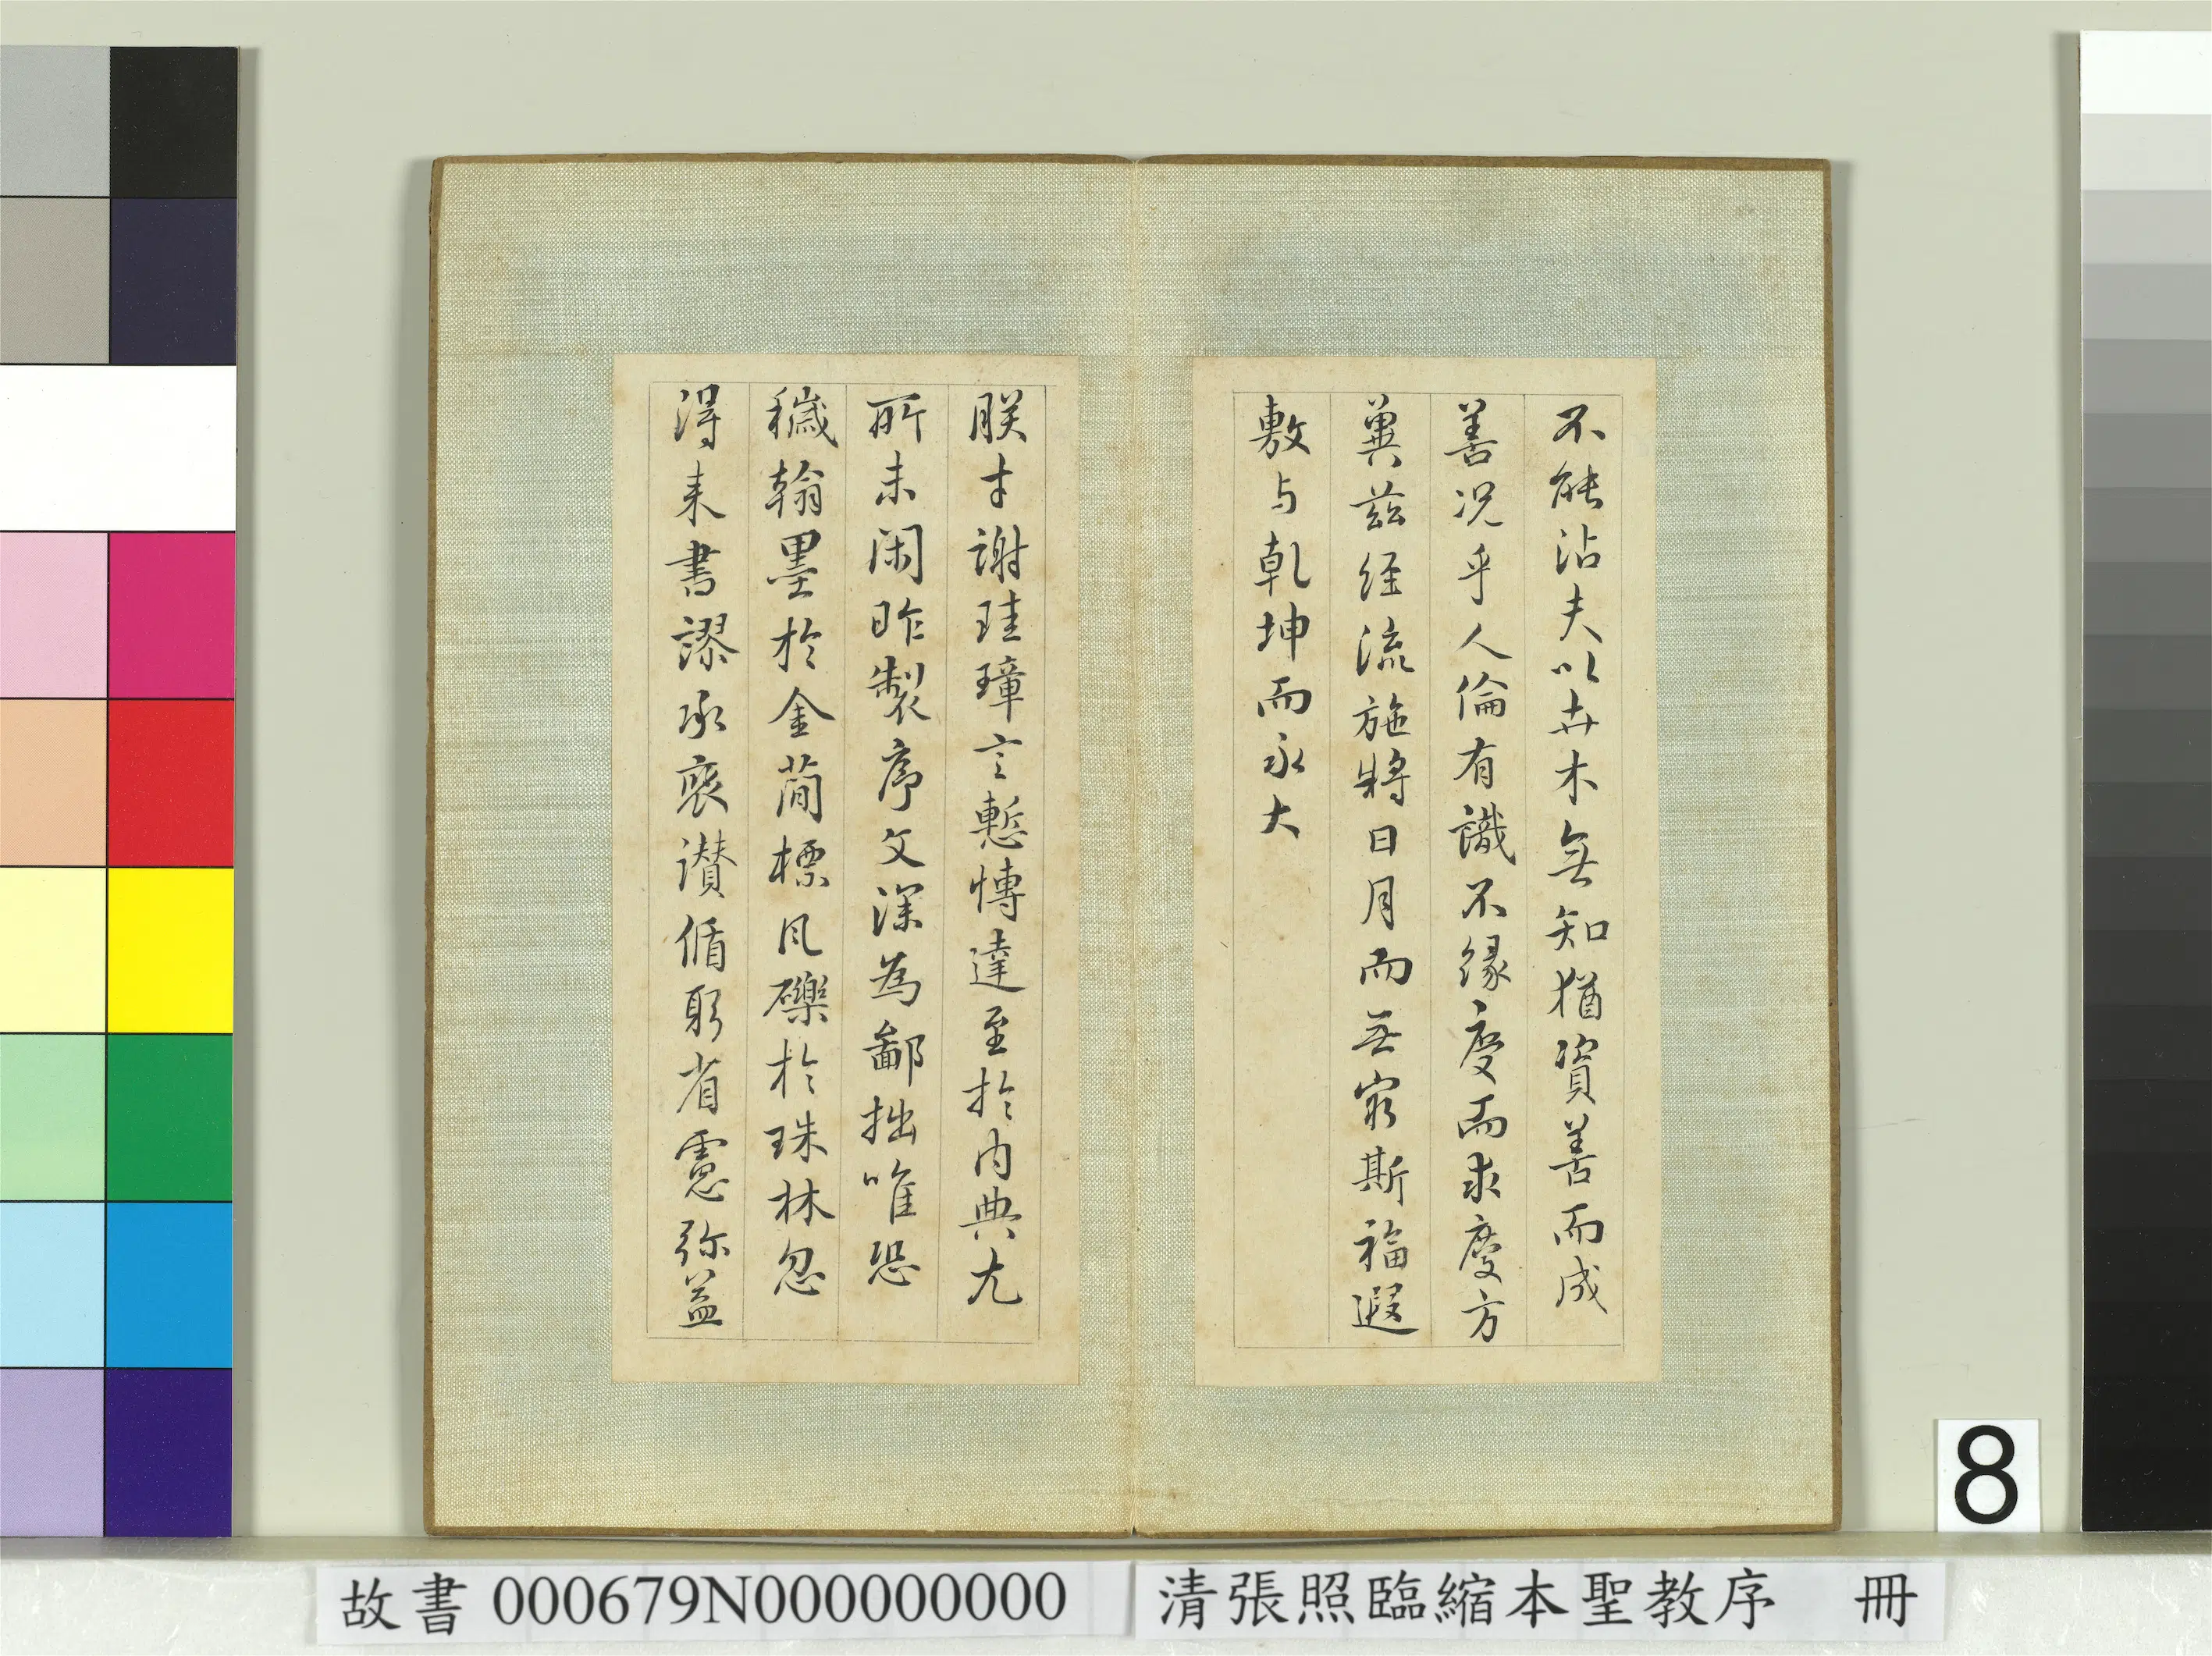 不能沾夫以卉木無知猶資善而成
善況乎人倫有識不緣慶而求慶方
冀茲经流施將日月而无窮斯福遐
敷与乾坤而永大
朕才謝珪璋言慙博達至於内典尤
所未閑昨製序文深為鄙拙唯恐
穢翰墨於金簡標瓦礫於珠林忽
得来書謬承褒讃循躬省慮弥益
8
故書 000679N000000000
清張照臨縮本聖教序 冊